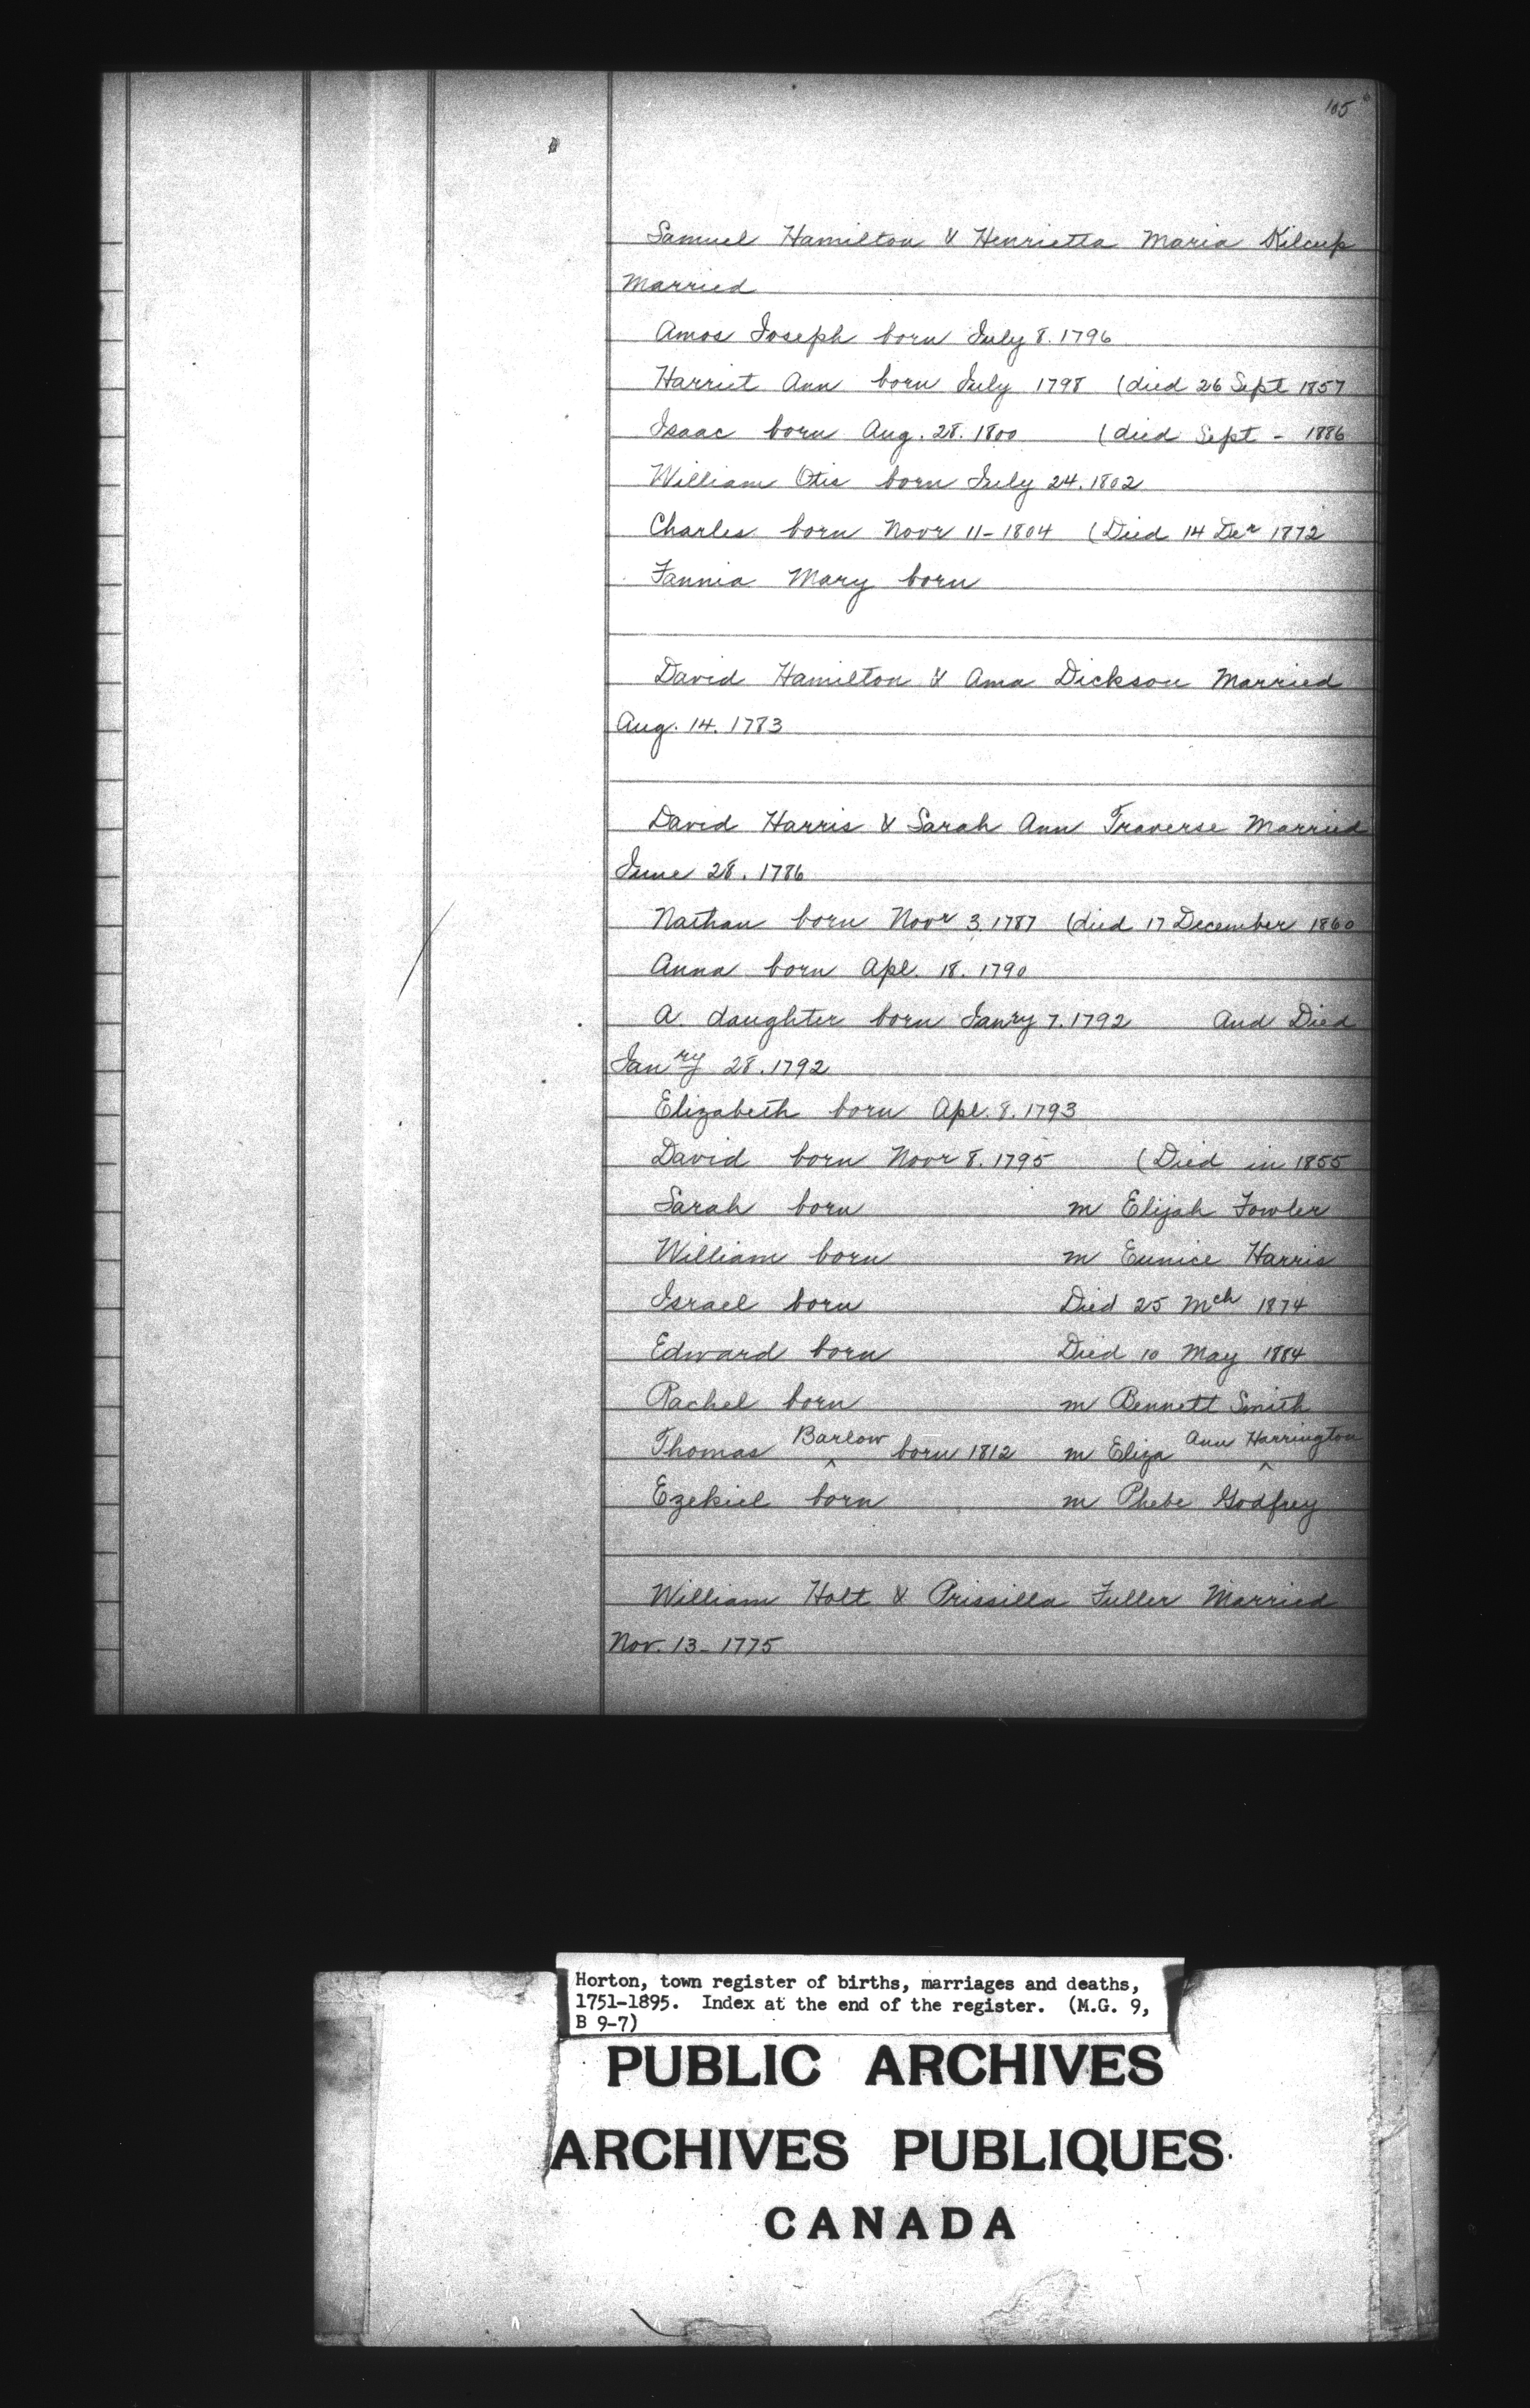 105
Samuel Hamilton & Henrietta Maria Kilcup
Married
Amos Joseph born July 8. 1796
Harriet Ann born July 1798 (died 26 Sept 1857
Isaac born Aug. 28. 1800 (died Sept - 1886
William Otis born July 24. 1802
Charles born Novr 11-1804 (Died 14 Der 1872
Fannia Mary born
David Hamilton & Ama Dickson Married
Aug. 14. 1783
David Harris & Sarah Ann Traverse Married
June 28. 1786
Nathan born Novr 3. 1787 (died 17 December 1860
Anna born Apl. 18. 1790
A daughter born Janry 7. 1792 And Died
Janry 28. 1792
Elizabeth born Apl. 8. 1793
David born Novr 8. 1795 (Died in 1855
Sarah born m Elijah Fowler
William born m Eunice Harris
Israel born Died 25 Mch 1874
Edward born Died 10 May 1884
Rachel born m Bennett Smith
Thomas Barlow born 1812 m Eliza Ann Harrington
Ezekiel born m Phebe Godfrey
William Holt & Prissilla Fuller Married
Nov. 13-1775
Horton, town register of births, marriages and deaths,
1751-1895. Index at the end of the register. (M.G. 9,
B 9-7)
PUBLIC ARCHIVES
ARCHIVES PUBLIQUES
CANADA